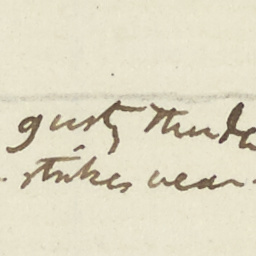 gusty thunde
strikes near